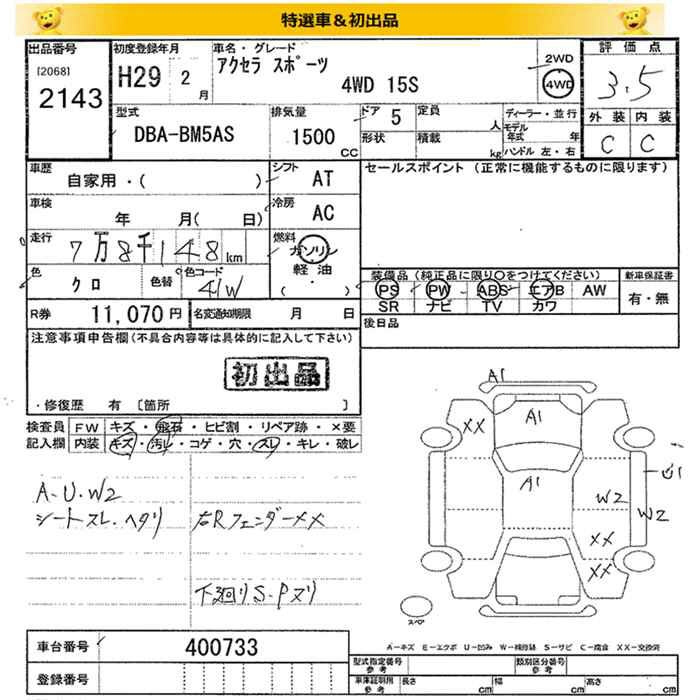 特選車&初出品
出品番号
[2068]
2143
初度登録年月
H29 2月
車名・グレード
アクセラ スポーツ
4WD 15S
2WD
4WD
評価点
3.5
外装 内装
C C
型式
DBA-BM5AS
排気量
1500 CC
ドア 5
定員 人
形状
積載 kg
ディーラー・並行
モデル年式 年
ハンドル 左・右
車歴
自家用・( )
シフト AT
車検
年 月( 日)
冷房 AC
走行
7万8千148km
燃料
ガソリン
軽油
( ・ )
色 クロ
色替
色コード 41W
R券 11,070円
名変通知期限 月 日
セールスポイント (正常に機能するものに限ります)
装備品(純正品に限り○をつけてください)
PS PW ABS エアB AW
SR ナビ TV カワ
新車保証書
有・無
後日品
注意事項申告欄(不具合内容等は具体的に記入して下さい)
初出品
・修復歴 有 〔箇所 〕
検査員記入欄
FW キズ・飛石・ヒビ割・リペア跡・×要
内装 キズ・汚レ・コゲ・穴・スレ・キレ・破レ
A-U-W2
シートスレ・ヘタリ
右Rフェンダー〆〆
下廻りS-Pヌリ
A1
XX
A1
A1
W2
W2
XX
XX
スペア
A-キズ E-エクボ U-凹み W-補修跡 S-サビ C-腐食 XX-交換済
車台番号 400733
登録番号
型式指定番号 参考
類別区分番号 参考
車庫証明用 参考
長さ cm 幅 cm 高さ cm